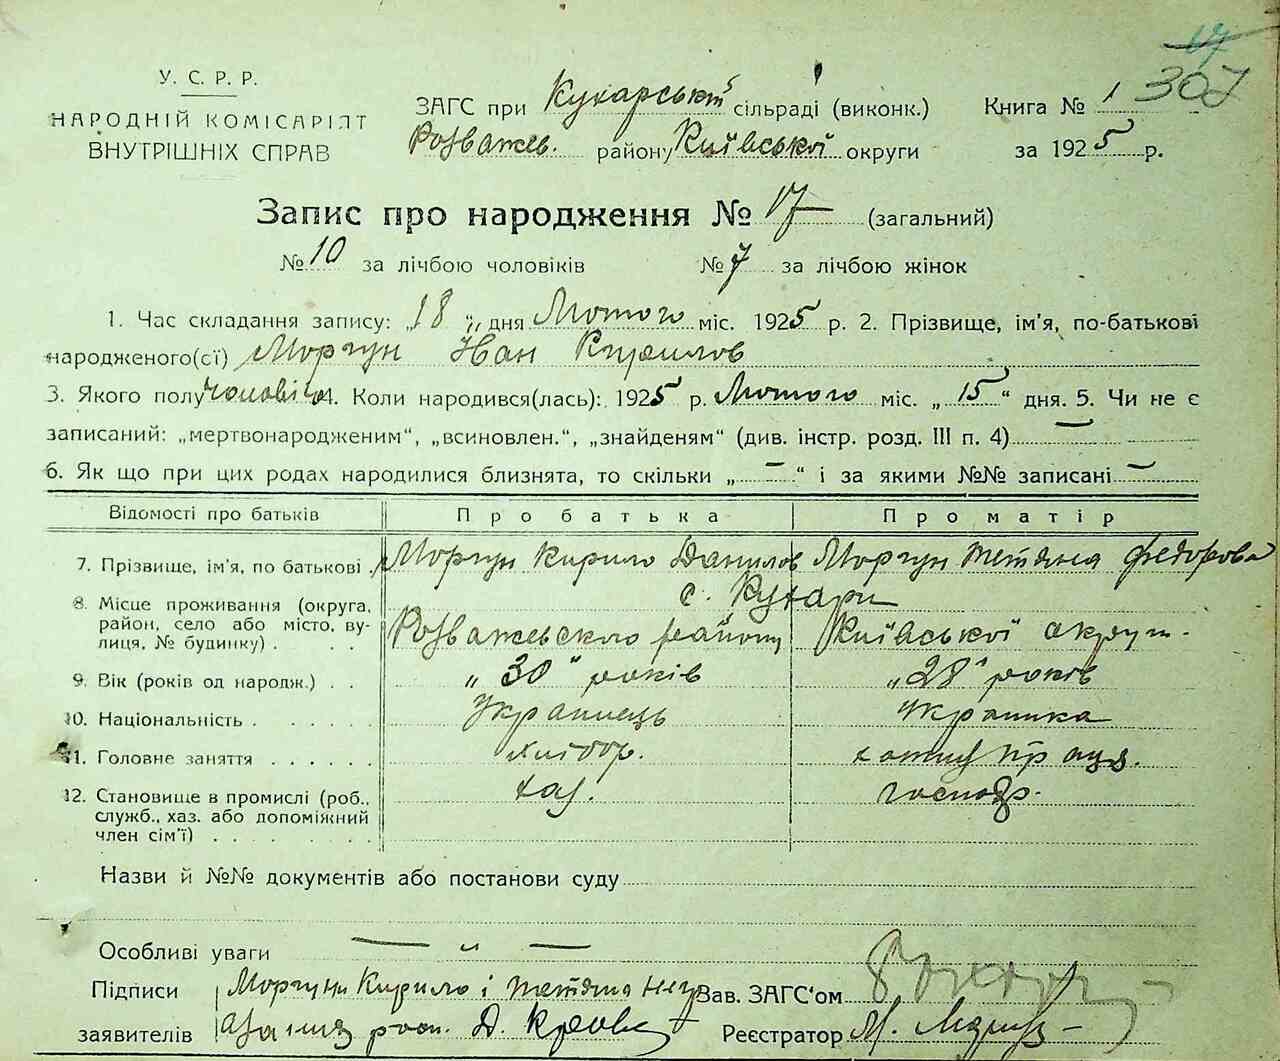 17
307
У. С. Р. Р.
НАРОДНІЙ КОМІСАРІЯТ
ВНУТРІШНІХ СПРАВ
ЗАГС при Кухарській сільраді (виконк.)
Розважев. району Київської округи
Книга № 1
за 1925 р.
Запис про народження № 17 (загальний)
№ 10 за лічбою чоловіків № 7 за лічбою жінок
1. Час складання запису: „18„ дня Лютого міс. 1925 р. 2. Прізвище, ім'я, по-батькові
народженого(сї) Моргун Іван Кирилов
3. Якого полу чоловічо 4. Коли народився(лась): 1925 р. Лютого міс. „15“ дня. 5. Чи не є
записаний: „мертвонародженим“, „всиновлен.“, „знайденям“ (див. інстр. розд. III п. 4) —
6. Як що при цих родах народилися близнята, то скільки „—“ і за якими №№ записані —
Відомості про батьків Про батька Про матір
7. Прізвище, ім'я, по батькові Моргун Кирило Данилов Моргун Тетяна Федорова
8. Місце проживання (округа, район, село або місто, вулиця, № будинку) . . . с. Кухари
Розважевского району Київської округи.
9. Вік (років од народж.) . . „30“ років „28“ років
10. Національність . . . . . . Українець Українка
11. Головне заняття . . . . . . хлібор. хатня прация.
12. Становище в промислі (роб., служб., хаз. або допоміжний член сім'ї) . . . . . . . хаз. господр.
Назви й №№ документів або постанови суду
Особливі уваги — „ —
Підписи Моргуни Кирило і Тетяна неу Зав. ЗАГС'ом
заявителів за них росп. Д. Реєстратор М.